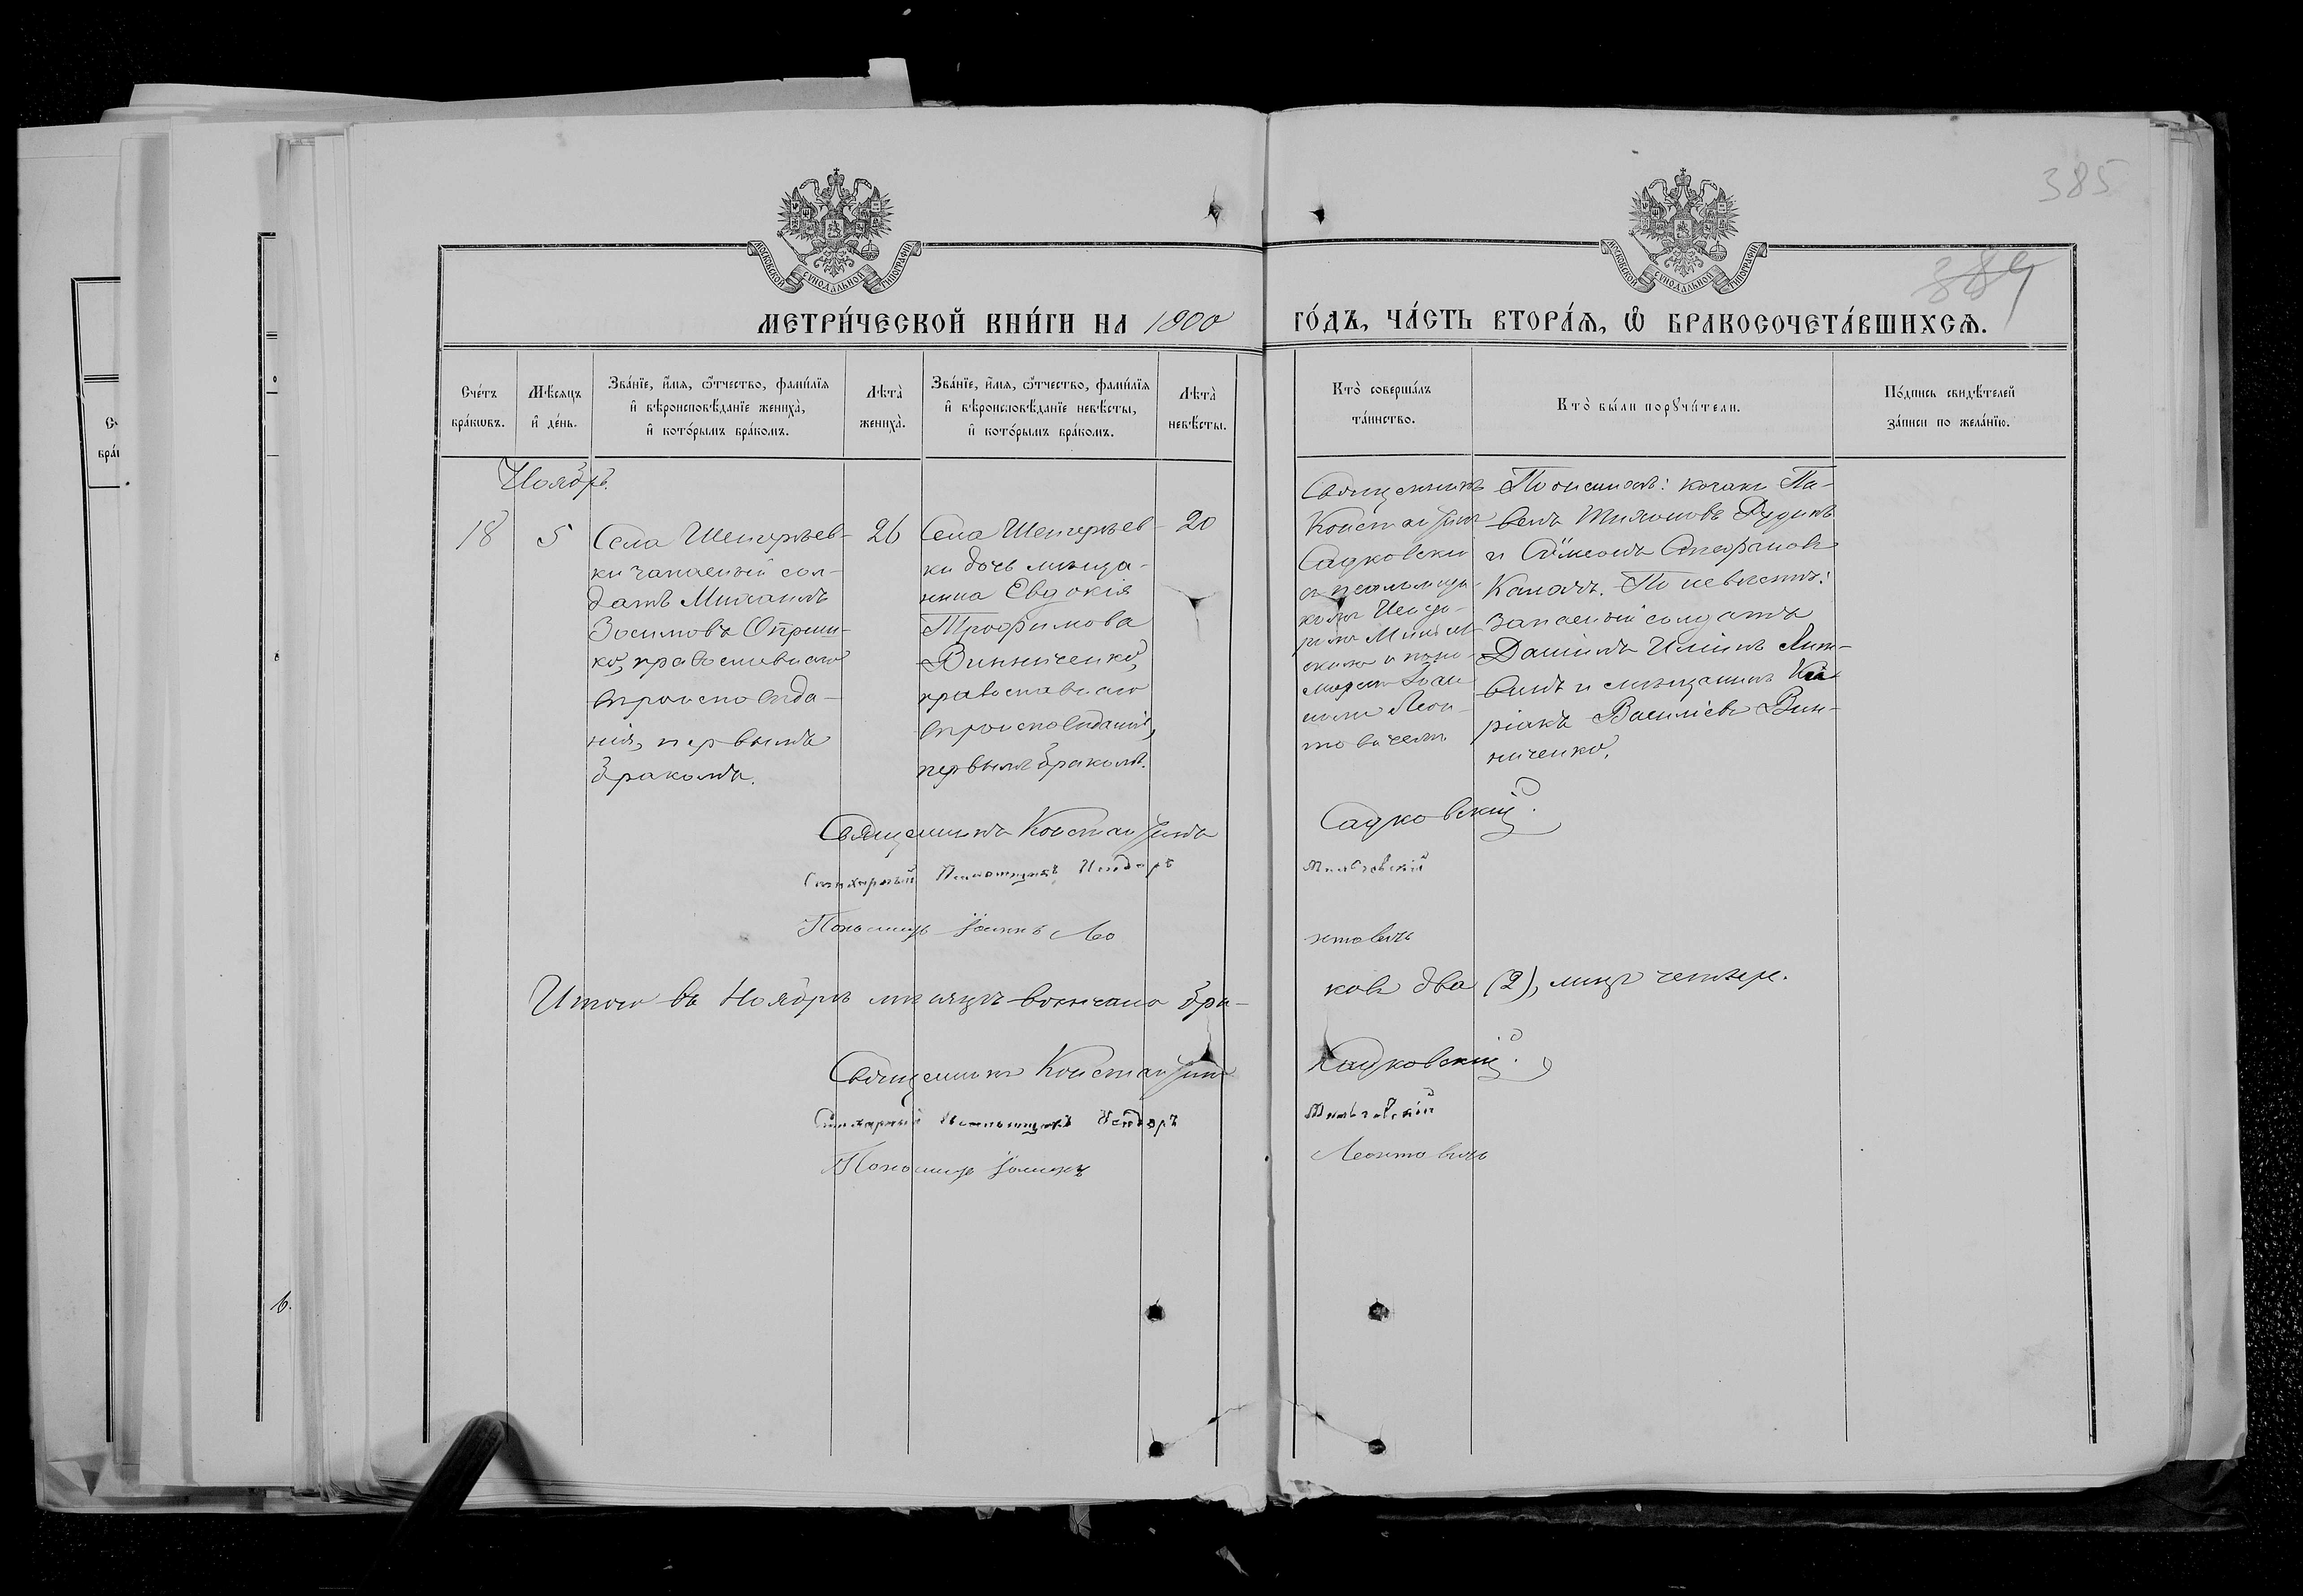 385
389
МОСКОВСКОЙ СѴНОДАЛЬНОЙ ТИПОГРАФІИ
МОСКОВСКОЙ СѴНОДАЛЬНОЙ ТИПОГРАФІИ
МЕТРИ́ЧЕСКОЙ КНИ́ГИ НА 1900
ГО́ДЪ, ЧА́СТЬ ВТОРА́Я, Ѡ҆ БРАКОСОЧЕТА́ВШИХСѦ.
Сче́тъ бра́кѡвъ.
Мѣ́сѧцъ и҆ де́нь.
Зва́нїе, и҆́мѧ, ѻ҆́тчество, фамі́лїѧ и҆ вѣроисповѣ́данїе жениха̀, и҆ кото́рымъ бра́комъ.
Лѣта̀ жениха̀.
Зва́нїе, и҆́мѧ, ѻ҆́тчество, фамі́лїѧ и҆ вѣроисповѣ́данїе невѣ́сты, и҆ кото́рымъ бра́комъ.
Лѣта̀ невѣ́сты.
Кто̀ соверша́лъ та́инство.
Кто̀ бы́ли порꙋчи́тели.
По́дпись свидѣ́телей за́писи по жела́нїю.
Ноябрь.
18
5
Села Шенгурѣев-
ки запасный сол-
датъ Михаилъ
Зосимовъ Опрыш-
ко, православнаго
вѣроисповѣда-
нія, первымъ
бракомъ.
26
Села Шенгурѣев-
ки дочь мѣща-
нина Евдокія
Трофимова
Винниченко,
православнаго
вѣроисповѣданія,
первымъ бракомъ.
20
Священникъ
Константинъ
Садковскій
съ псаломщи-
комъ Исидо-
ромъ
и поно-
маремъ Іоан-
номъ Леон-
товичемъ
По женихѣ: козаки Па-
велъ Дудикъ
и Сѵмеонъ Стефановъ
По невѣстѣ:
запасный солдатъ
Даніилъ Ильинъ Лит-
винъ и мѣщанинъ Ки-
ріакъ Василіевъ Вин-
ниченко.
Священникъ Константинъ Садковскій.
Стихарный Псаломщикъ Исидоръ
Пономарь Іоаннъ Леонтовичъ
Итого въ Ноябрѣ мѣсяцѣ вѣнчано бра-
ковъ два (2), лицъ четыре.
Священникъ Константинъ Садковскій.
Стихарный Псаломщикъ Исидоръ
Пономарь Іоаннъ Леонтовичъ